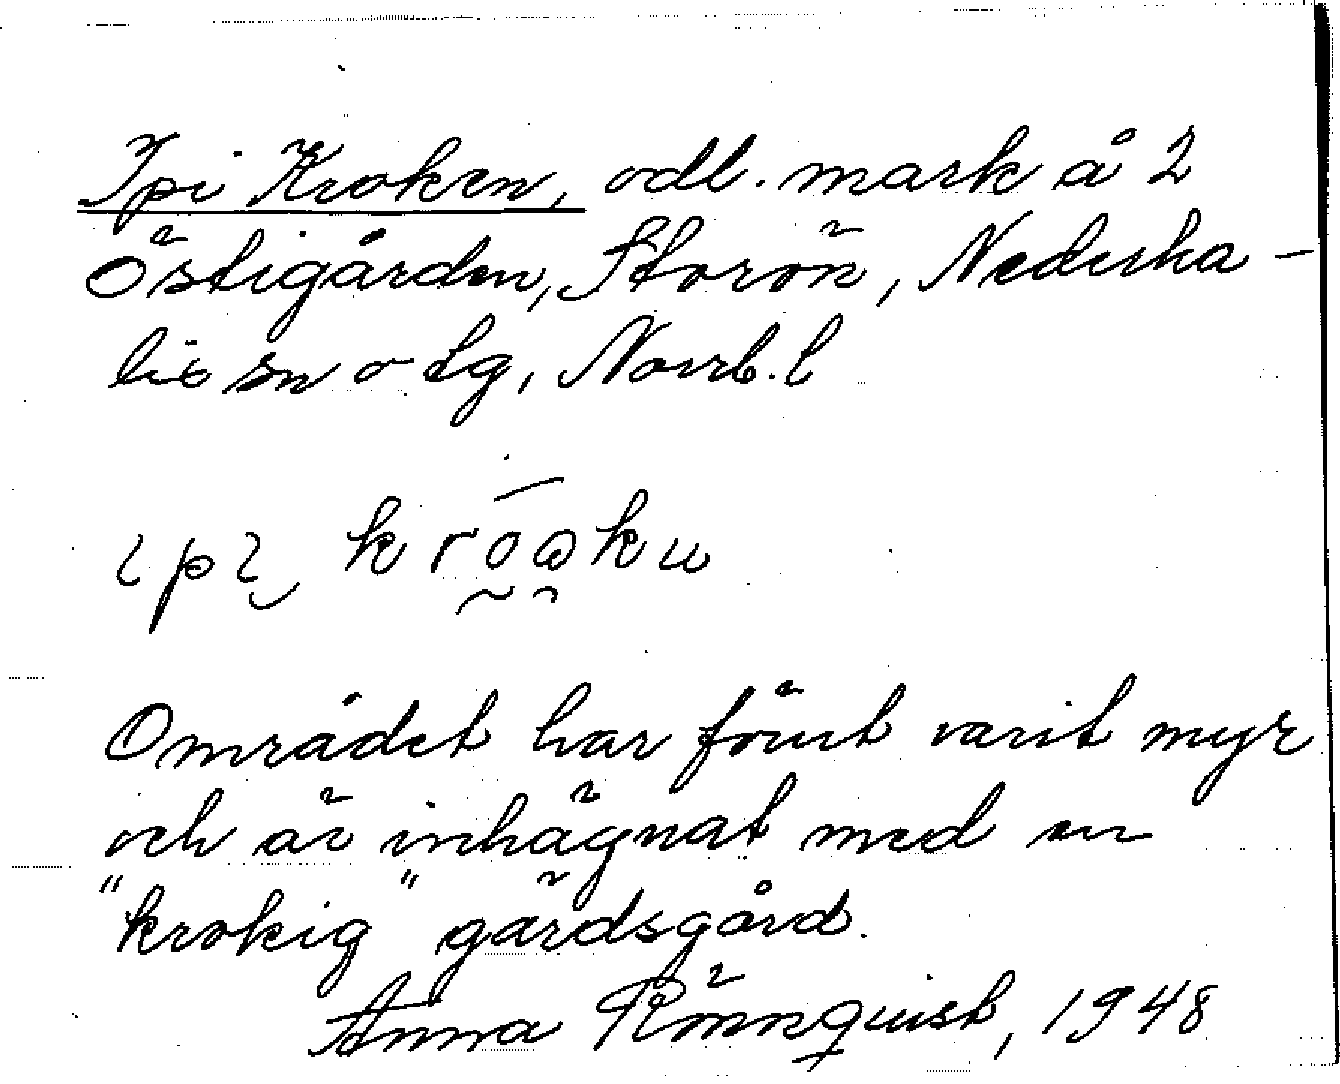 Ipi Kroken, odl. mark å 2
Östigården, Storön, Nederka-
lix sn o tg, Norrb. l
ipi krooku
Området har förut varit myr
och är inhägnat med en
"krokig" gärdsgård.
Anna Rönnquist, 1948